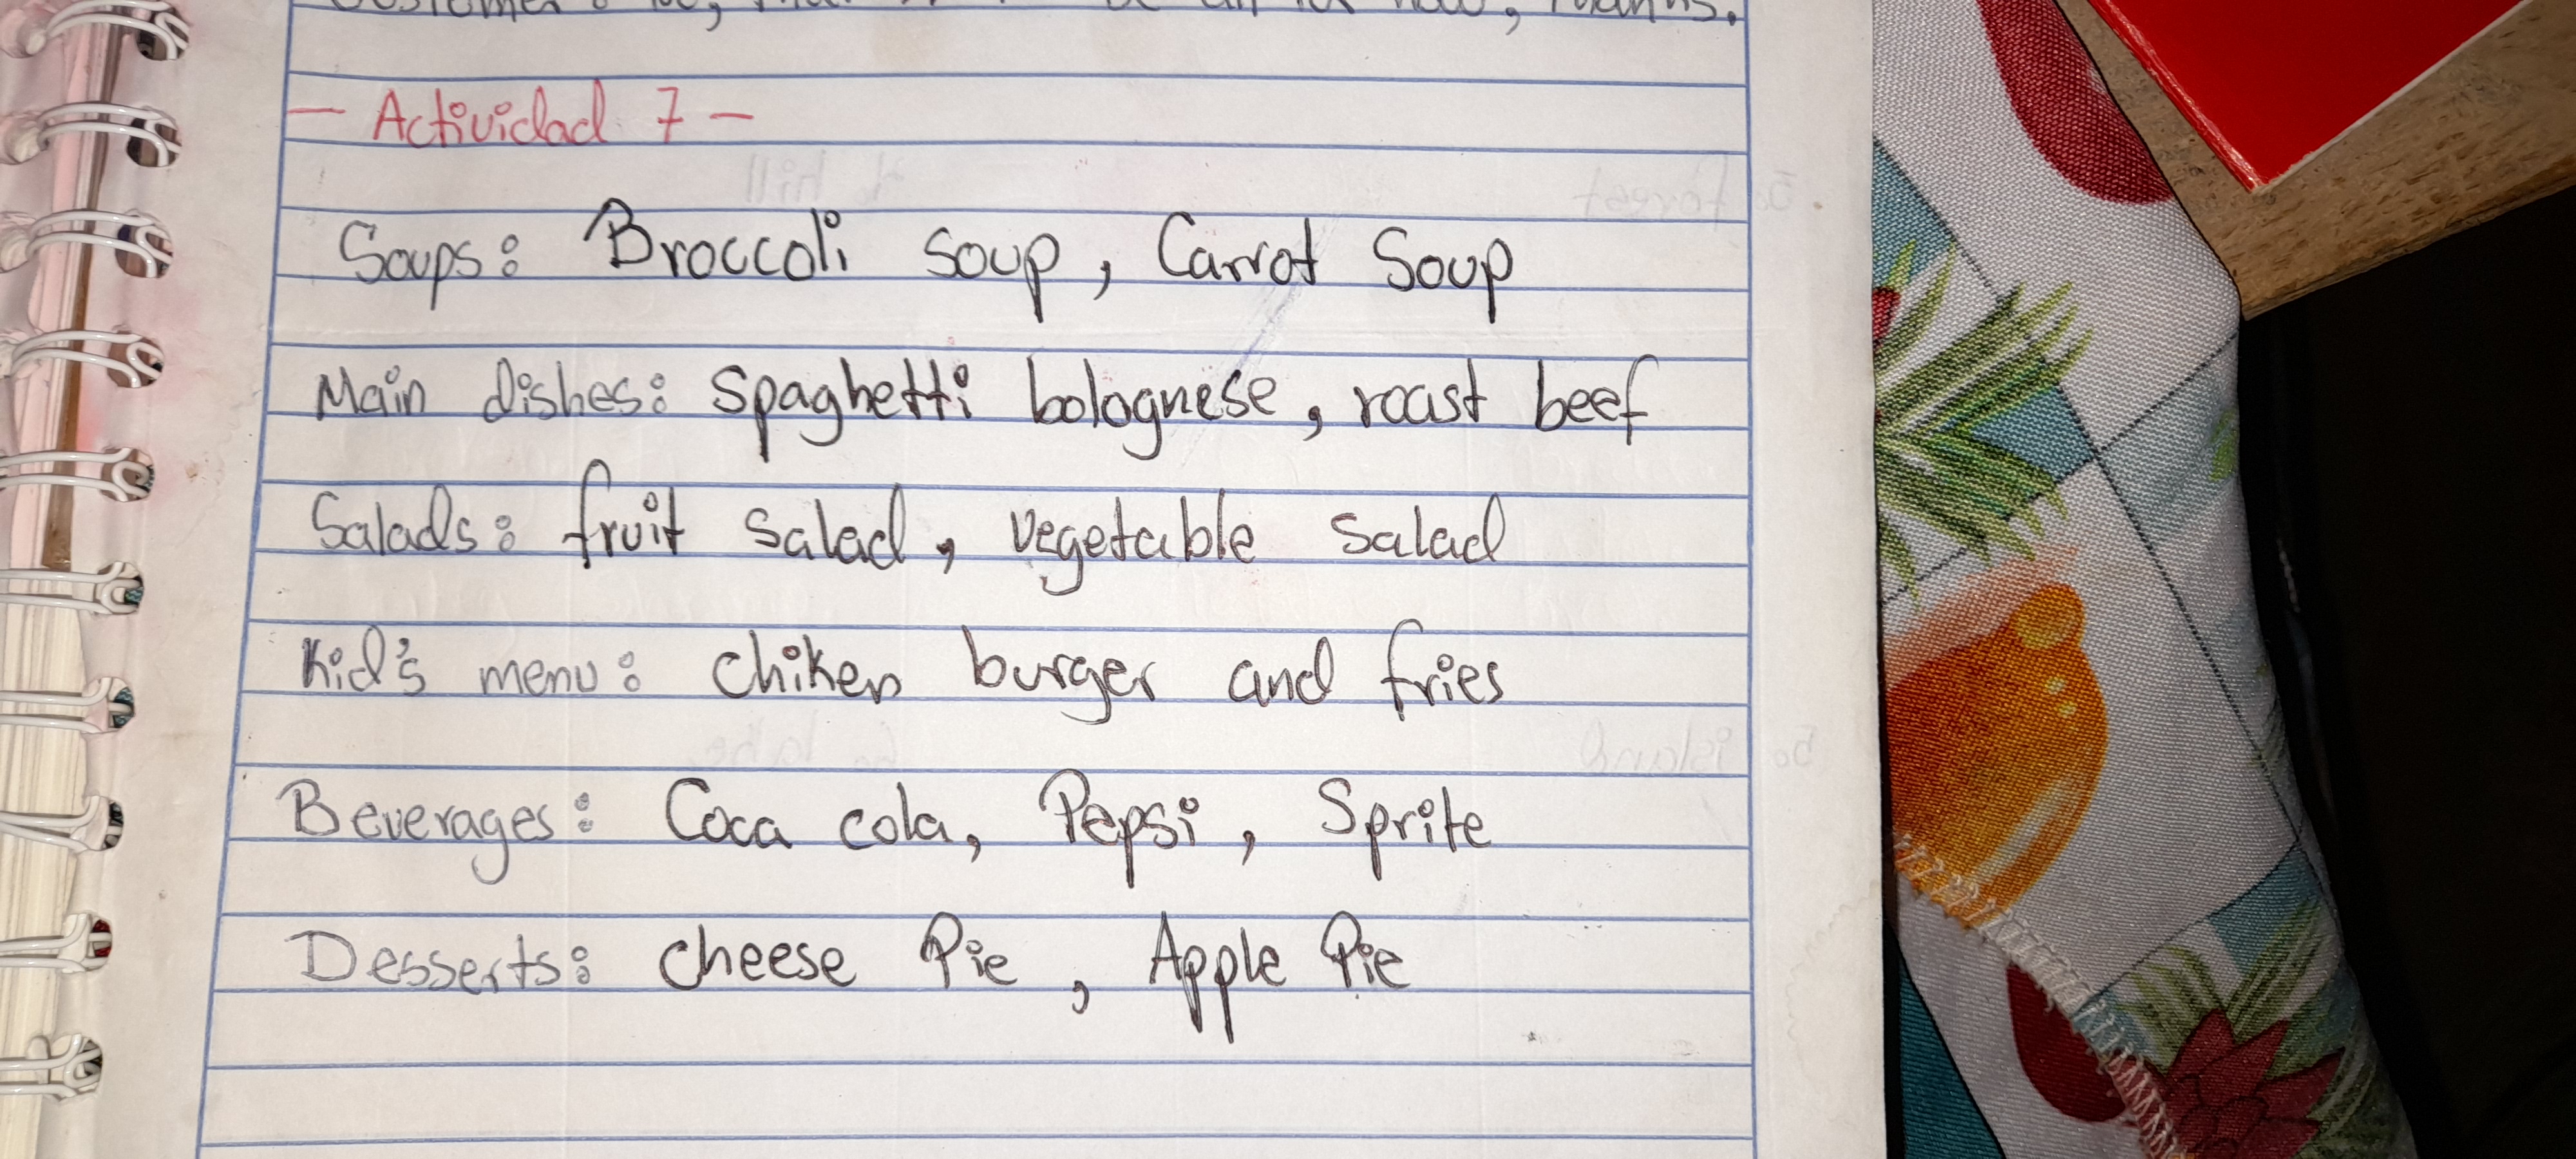 - Actividad 7 -
Soups: Broccoli soup, Carrot Soup
Main dishes: Spaghetti bolognese, roast beef
Salads: fruit salad, vegetable salad
Kid's menu: chiken burger and fries
Beverages: Coca cola, Pepsi, Sprite
Desserts: cheese Pie, Apple Pie